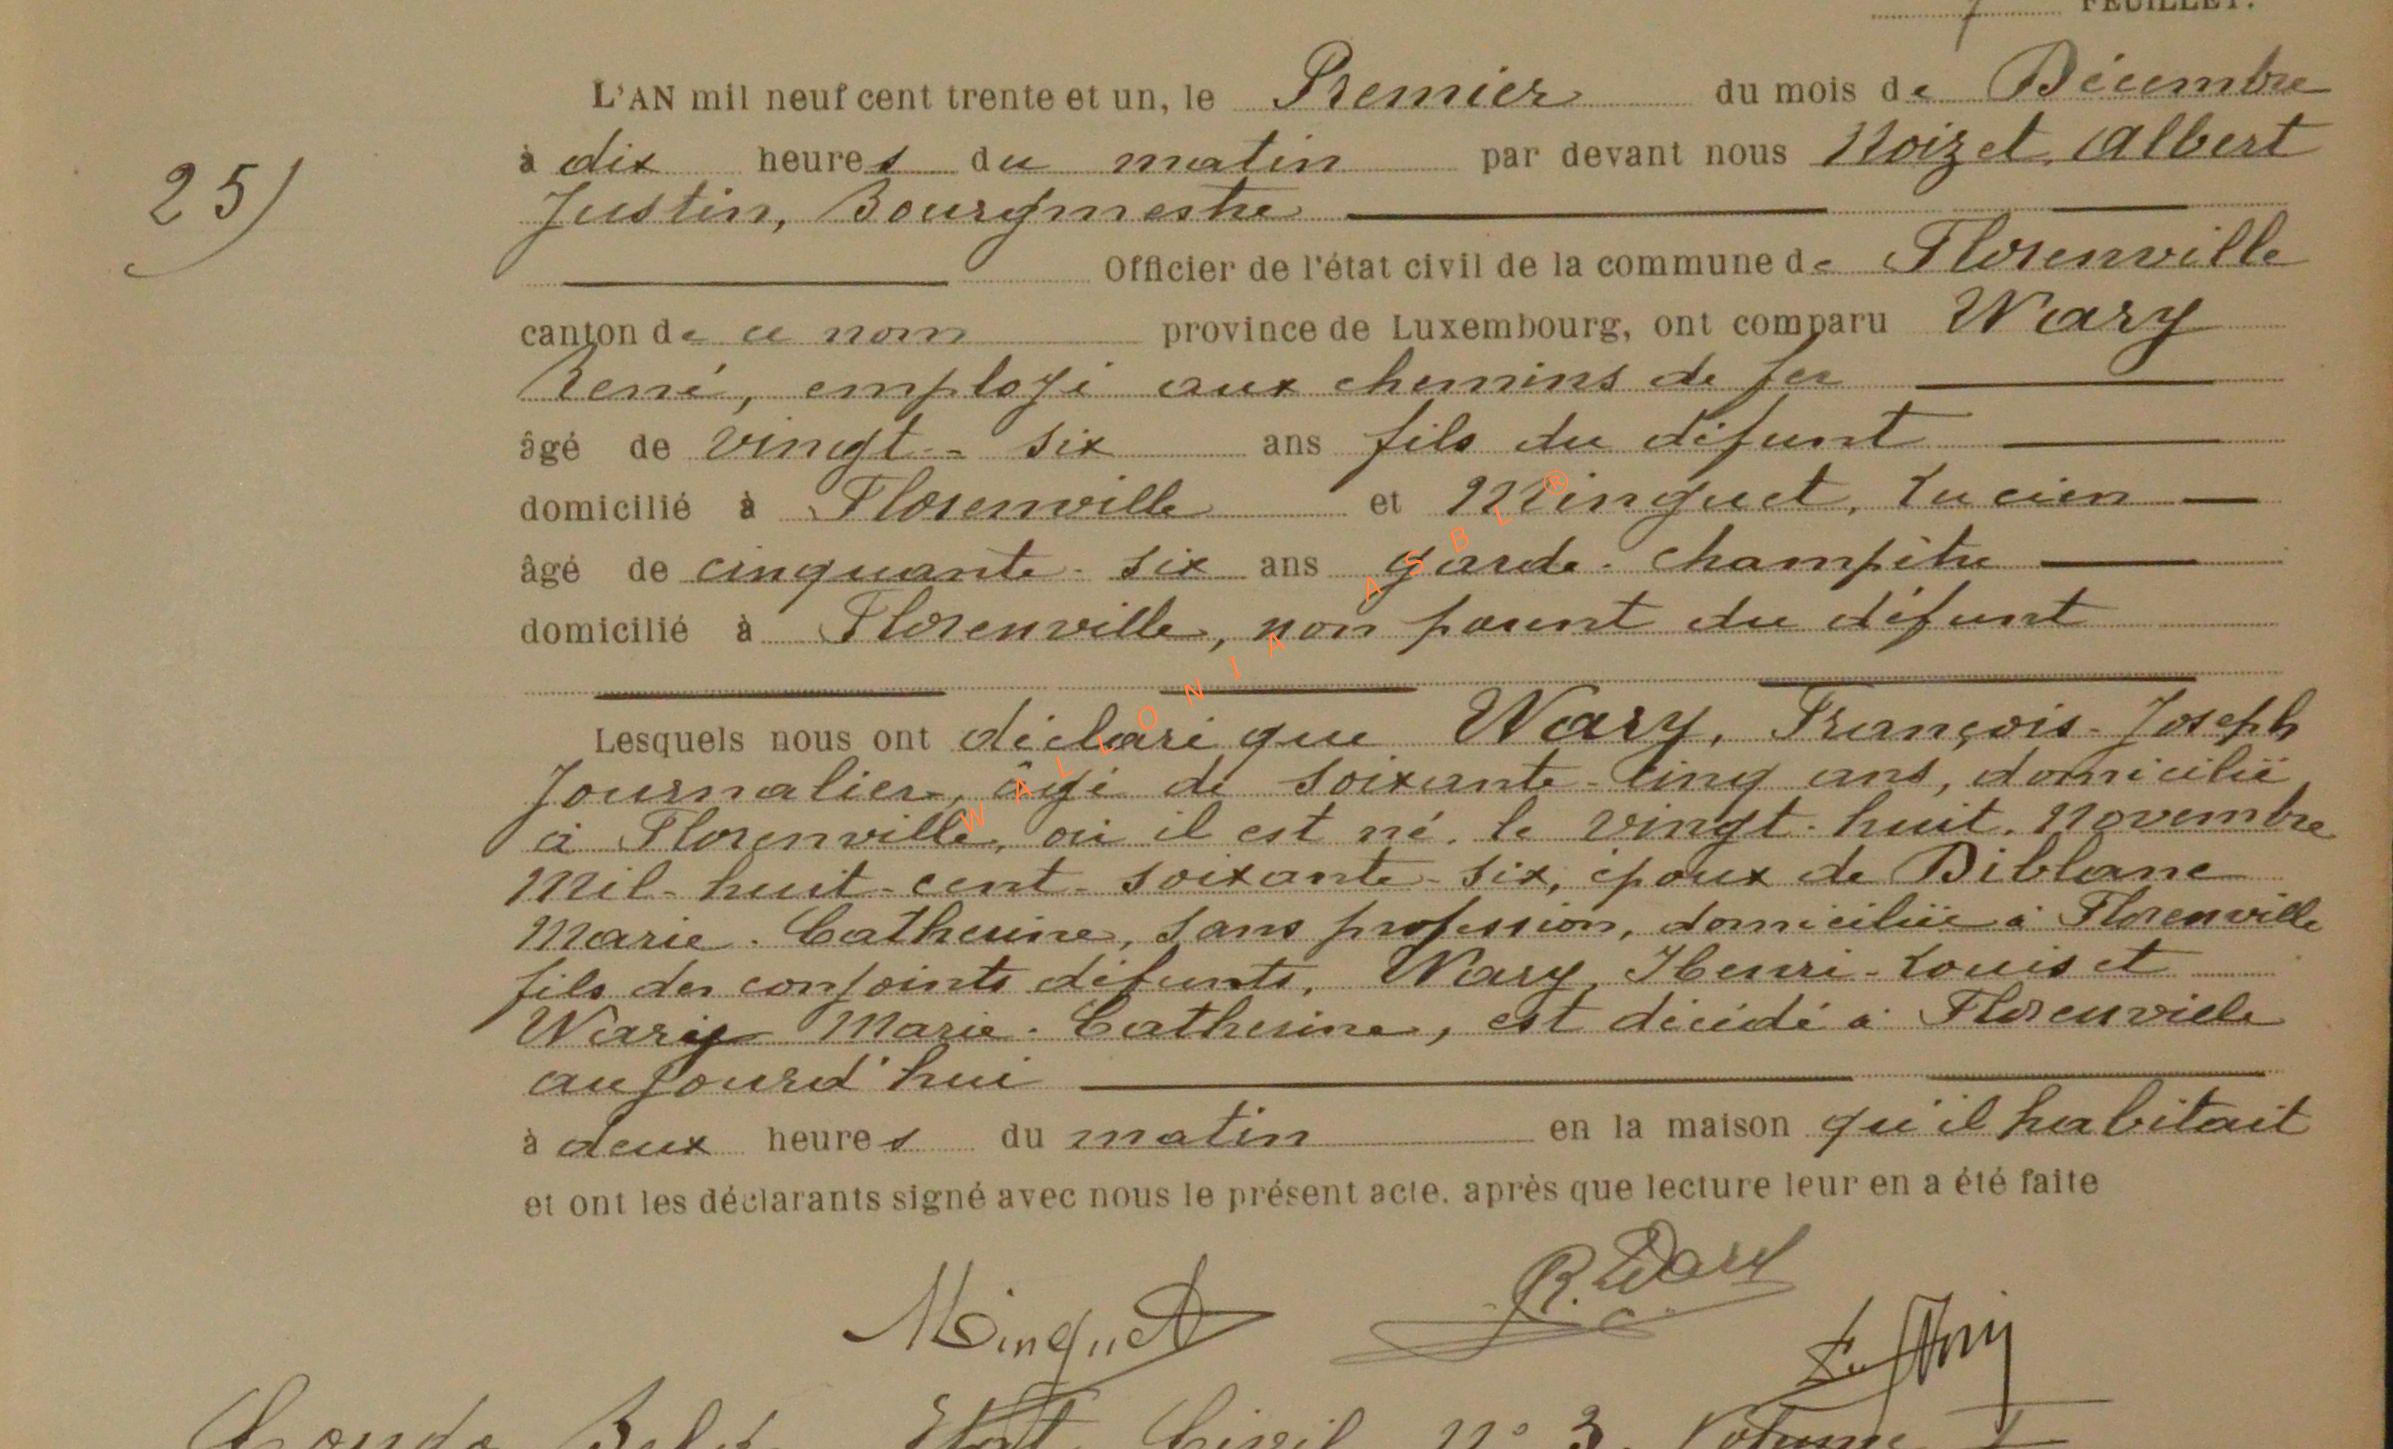 7 FEUILLET.
L'AN mil neuf cent trente et un, le Premier du mois de Décembre
25) à dix heures du matin par devant nous Noizet, Albert
Justin, Bourgmestre
Officier de l'état civil de la commune de Florenville
canton de ce nom province de Luxembourg, ont comparu Wary
René, employé aux chemins de fer
âgé de vingt-six ans fils du défunt
domicilié à Florenville et Minguet, Lucien
âgé de cinquante-six ans garde-champêtre
domicilié à Florenville, non parent du défunt
Lesquels nous ont déclaré que Wary, François-Joseph
Journalier, âgé de soixante-cinq ans, domicilié
à Florenville, où il est né, le vingt-huit Novembre
Mil-huit-cent-soixante-six, époux de Diblane
Marie-Catherine, sans profession, domiciliée à Florenville
fils des conjoints défunts, Wary, Henri-Louis et
Wary Marie-Catherine, est décédé à Florenville
aujourd'hui
à deux heures du matin en la maison qu'il habitait
et ont les déclarants signé avec nous le présent acte, après que lecture leur en a été faite
Minguet R. Wary
Etat Civil N° 3. Volume I
WALLONIA ASBL ®